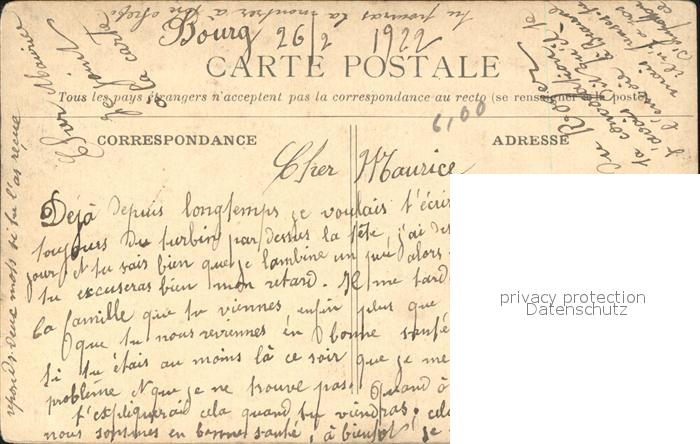 tu pourras la montrer à ton chef
Bourg 26/2 1922
CARTE POSTALE
Tous les pays étrangers n'acceptent pas la correspondance au recto (se renseigner à la poste)
6,00
CORRESPONDANCE
ADRESSE
Cher Maurice
Déjà depuis longtemps je voulais t'écrir
toujours du turbin par dessus la tête j'ai des
jour N tu sais bien que je lambine un peu alors
tu excuseras bien mon retard. Il me tard
la famille que tu viennes enfin plus que
que tu nous reviennes en bonne santé
Si tu étais au moins là ce soir que je me
problème N que je ne trouve pas. Quand à
t'expliquerai cela quand tu viendras, cel
nous sommes en bonne santé, à bientôt je
réponds deux mots si tu l'as reçue
Cher Maurice
je
la carte
privacy protection
Datenschutz